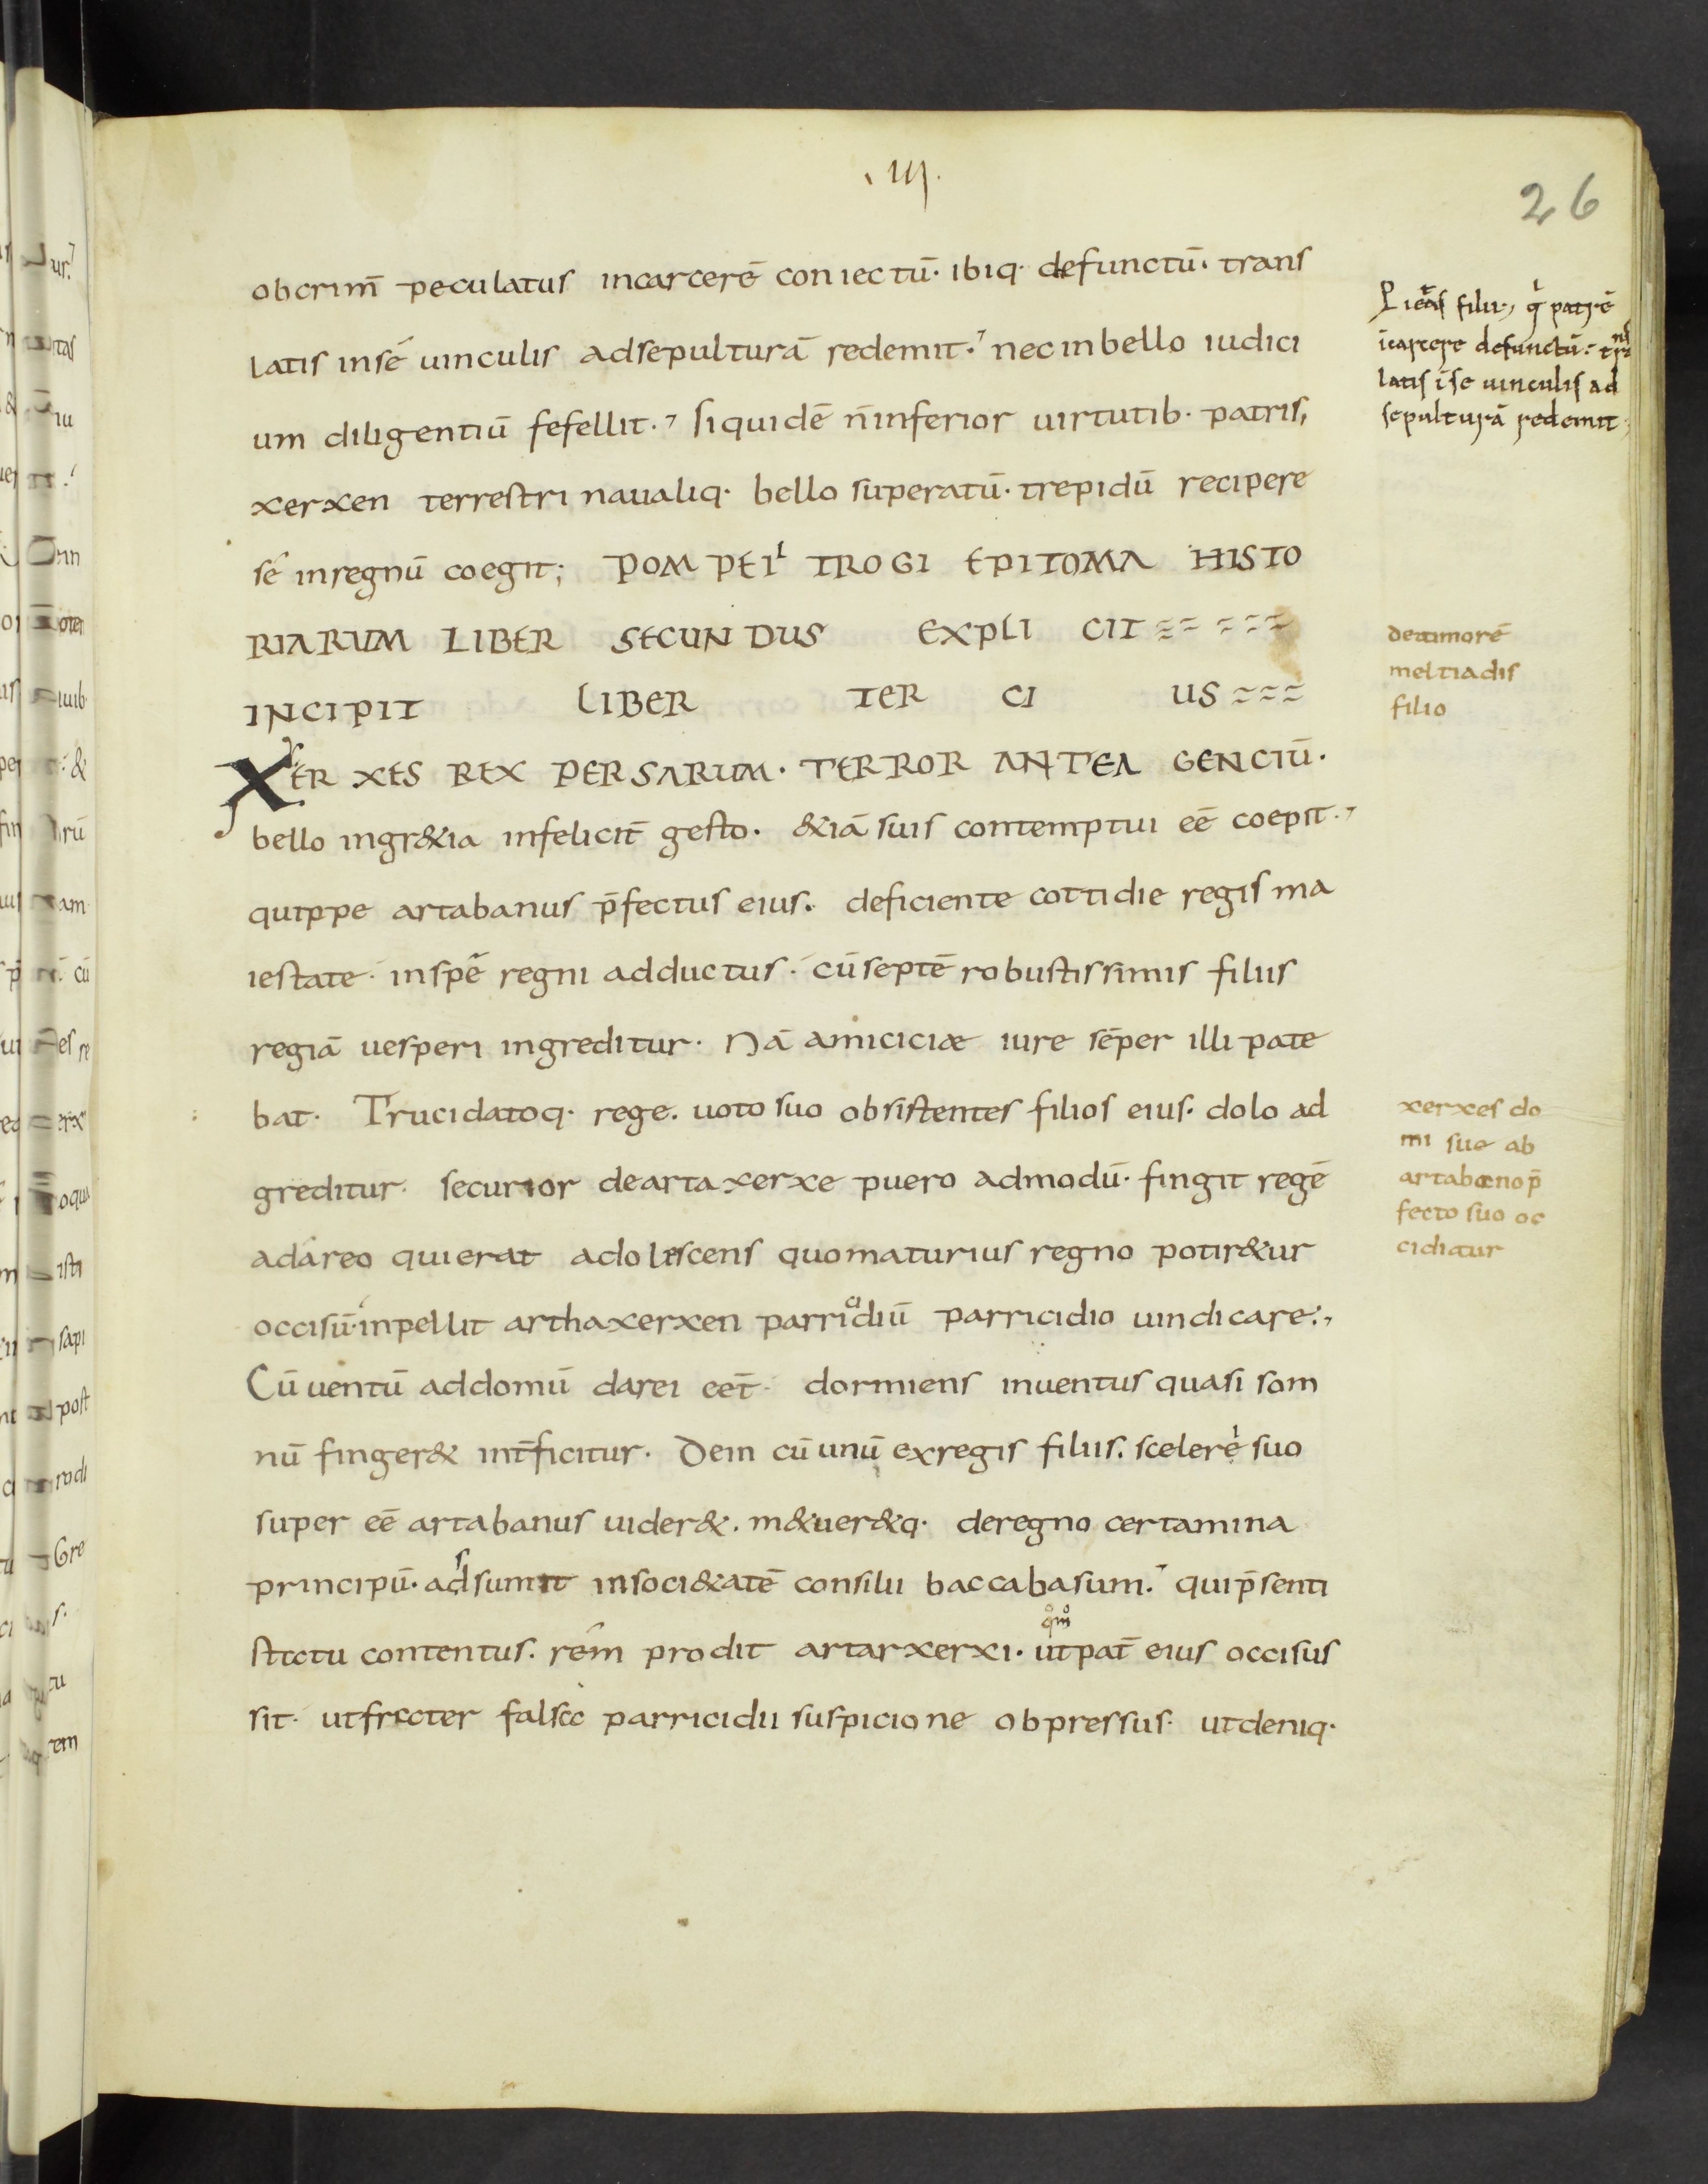 .III.
26
obcrim̄ peculatus incarcerē coniectū· ibiq· defunctū· trans
latis insé uinculis adsepulturā redemit· nec inbello iudici
um diligentiū fefellit· siquidē n̄ inferior uirtutib· patris,
xerxen terrestri naualiq· bello superatū· trepidū recipere
sé inregnū coegit; POMPEII TROGI EPITOMA HISTO
RIARUM LIBER SECUNDUS EXPLICIT
INCIPIT LIBER TERCIUS
XERXES REX PERSARUM· TERROR ANTEA GENCIŪ·
bello ingr&ia infelicit̄ gesto· &iā suis contemptui eē coepit·
quippe artabanus p̄fectus eius· deficiente cottidie regis ma
iestate· inspē regni adductus· cū septē robustissimis filiis
regiā uesperi ingreditur· Nā amiciciæ iure sēper illi pate
bat· Trucidatoq· rege· uoto suo obsistentes filios eius· dolo ad
greditur· securior de artaxerxe puero admodū· fingit regē
adareo qui erat adoliscens quo maturius regno potir&ur
occisū· inpellit arthaxerxen parricidiū parricidio uindicare·
Cū uentū ad domū darei eēt· dormiens inuentus quasi som
nū finger& int̄ficitur· Dein cū unū exregis filiis· scelere suo
super eē artabanus uider&· m&uer&q· deregno certamina
principū· adsumit insoci&atē consilii baccabasum· qui p̄senti
statu contentus· rem prodit artarxerxi· ut pat̄ eius occisus
sit· ut frater falsa parricidii suspicione obpressus· ut deniq·
filii, q patrē
icarcere defunctū· tra
latis ise uinculis ad
sepulturā redemit
de amore
meltiadis
filio
xerxes do
mi sue ab
artabano p̄
fecto suo oc
ciditur